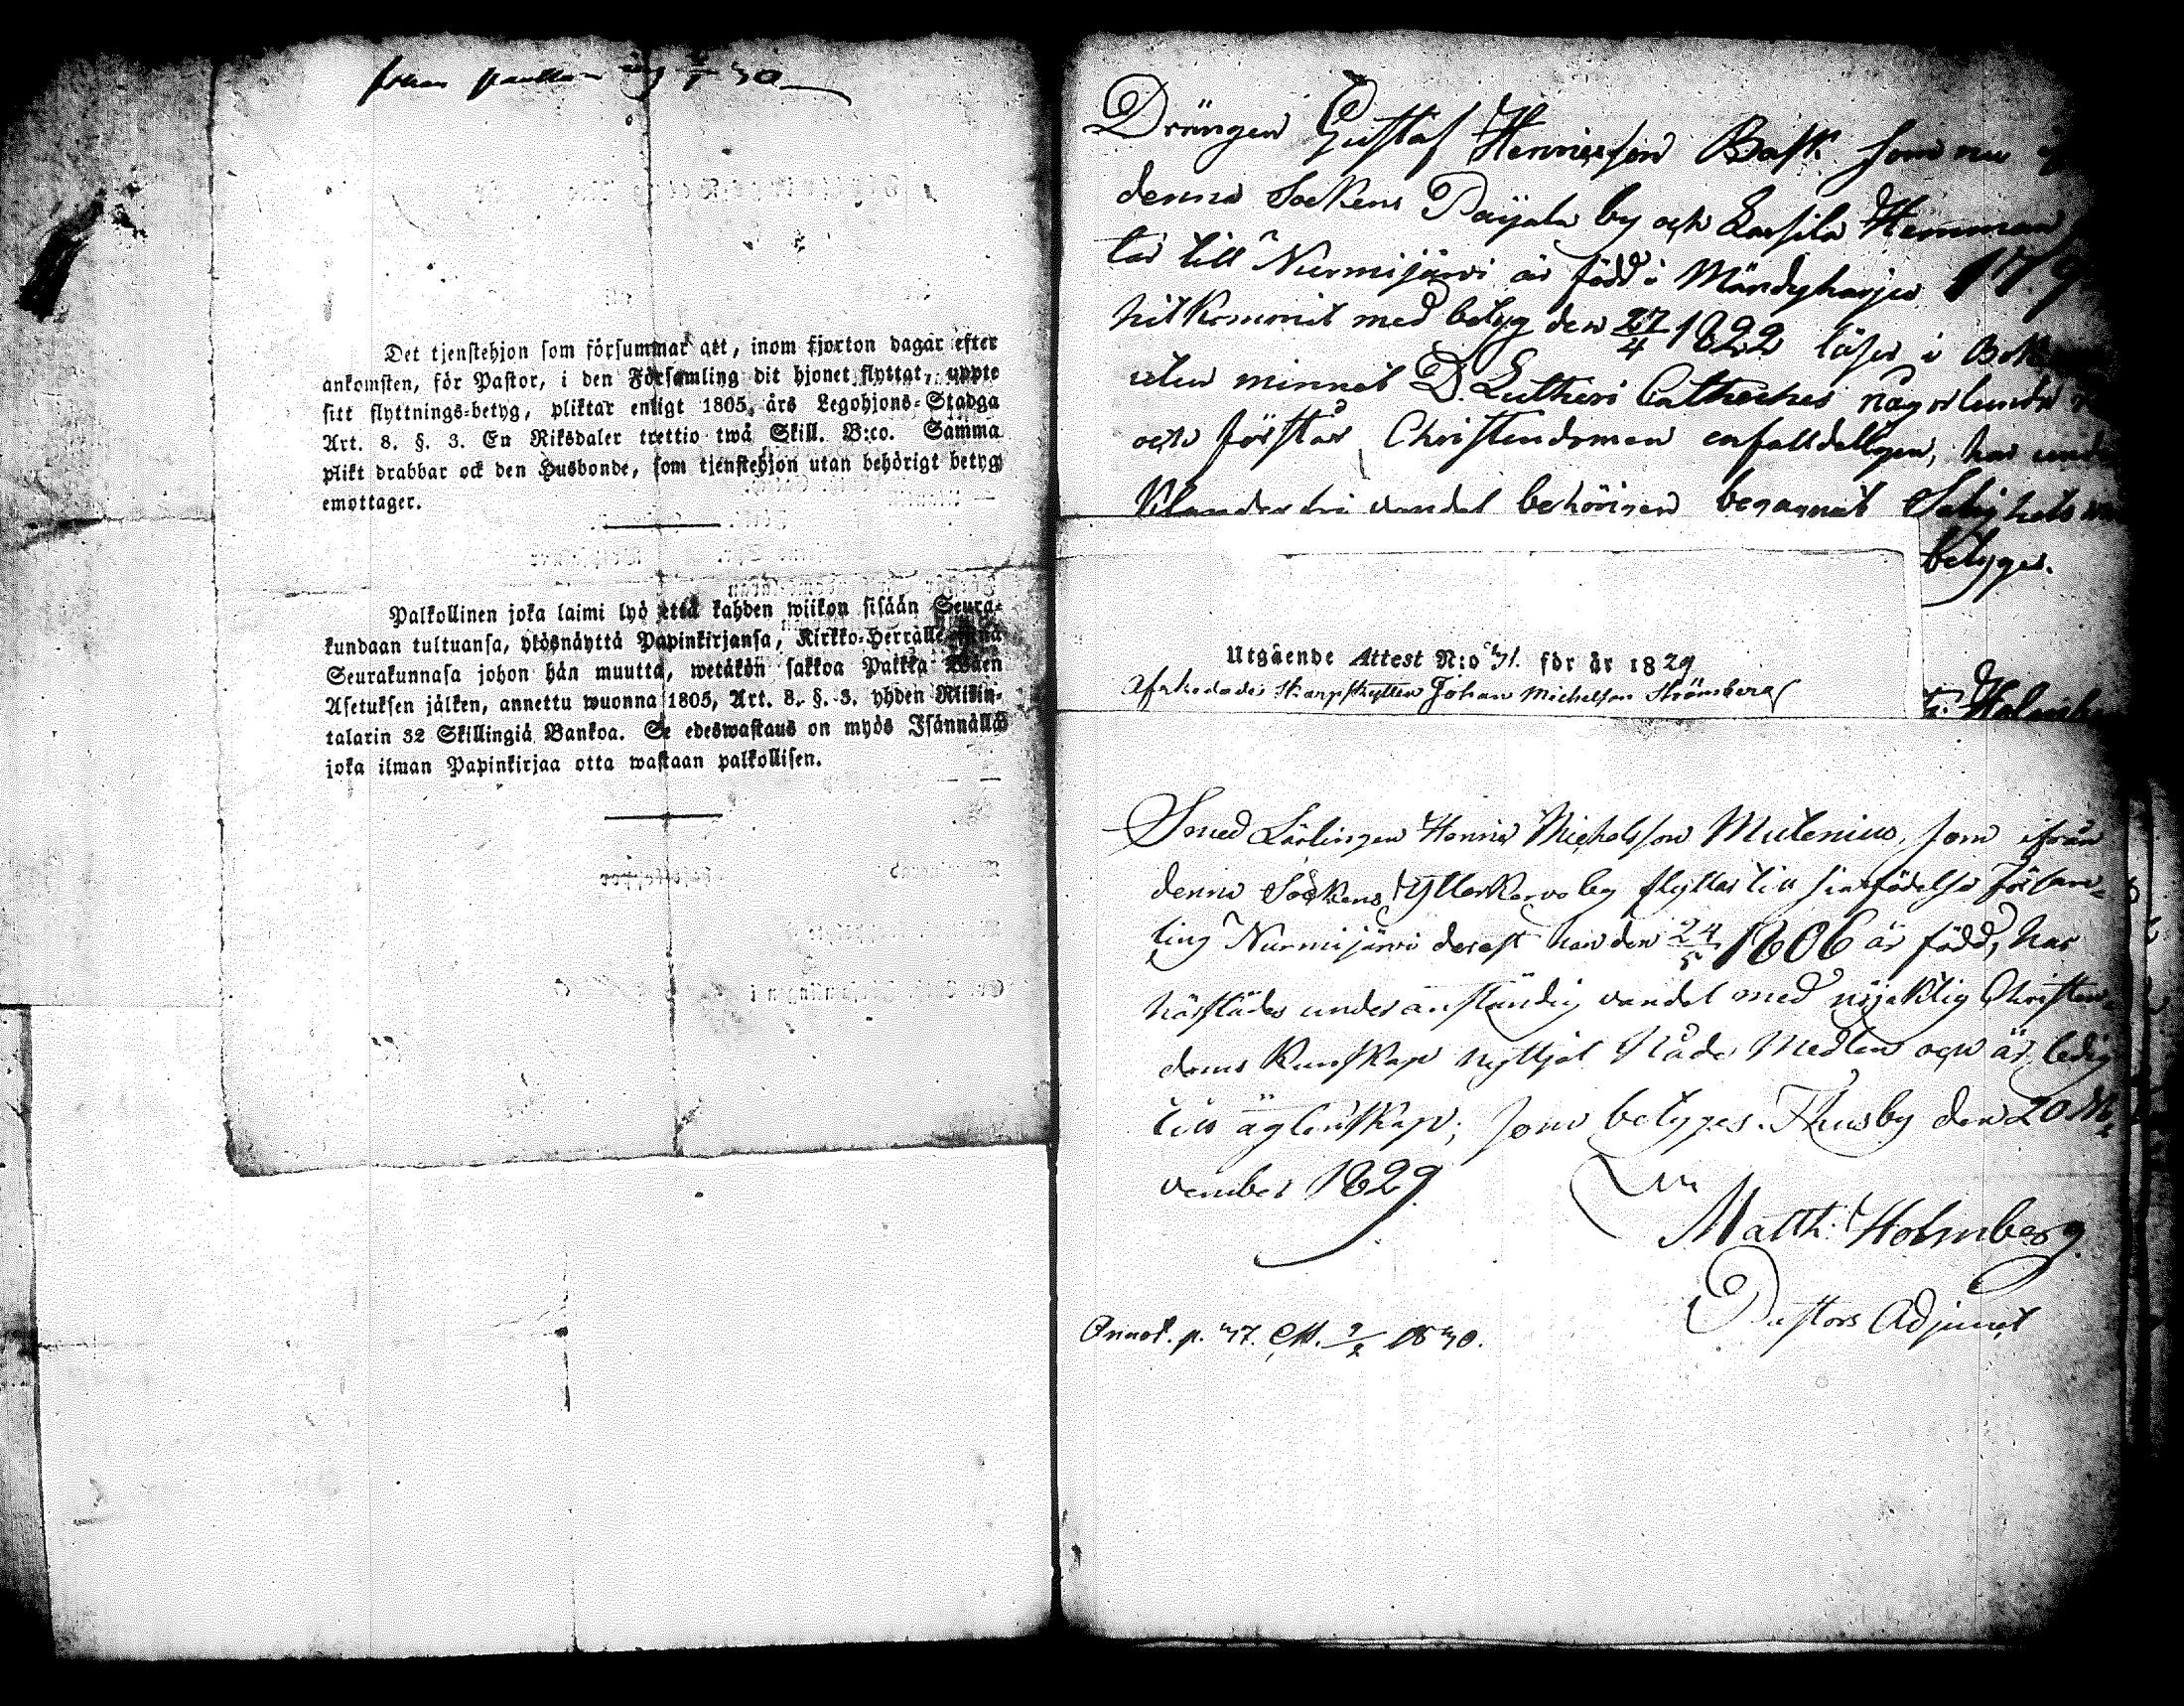 Det tjenstehjon som försummar att, inom fjorton dagar efter
ankomsten, för Pastor, i den Församling dit hjonet flyttat, uppte
sitt flyttnings-betyg, pliktar enligt 1805 års Legohjons-Stadga
Art. 8. §. 3. En Riksdaler trettio twå Skill. B:co. Samma
plikt drabbar ock den Husbonde, som tjenstehjon utan behörigt betyg
emottager.
Palkollinen joka laimi lyö että kahden wiikon sisään Seura-
kundaan tultuansa, ylösnäyttä Papinkirjansa, Kirkko-Herralle
Seurakunnasa johon hän muutta, wetäkön sakkoa Palkka Wäen
Asetuksen jälken, annettu wuonna 1805, Art. 8. §. 3. yhden Riksin-
talarin 32 Skillingiä Bankoa. Se edeswastaus on myös Isännällä
joka ilman Papinkirjaa otta wastaan palkollisen.
Drängen Gustaf Henricsson Bask som nu
denna Sockens Paijala by och Lassila Hemman
tar till Nurmijärvi är född i Mändyharju 179
hitkommit med betyg den 27/4 1822 läser i Bok
utur minnet D. Lutheri Catheches någorlunda
och förstår Christendomen enfalldeligen, har und
Klanderfri vandel behörigen begagnat Salighets
betyges.
Utgående Attest N:o 31. för år 1829
Afskedade Skarpskytten Johan Michelson Strömberg
Smed Lärlingen Henric Michelsson Mutenius, som ifrån
denna Sockens Ytterkervo by flyttar till sin födelse Försam-
ling Nurmijärvi derest han den 24/5 1806 är född, har
härstädes under anständig vandel med nöjaktig Christen-
doms Kunskap nyttjat Nåde Medlen och är ledig
till ägtenskap; som betyges. Thusby den 20 No-
vember 1829.
Matth: Holmberg
Pastors Adjunct
Annot. p. 37. 1830.